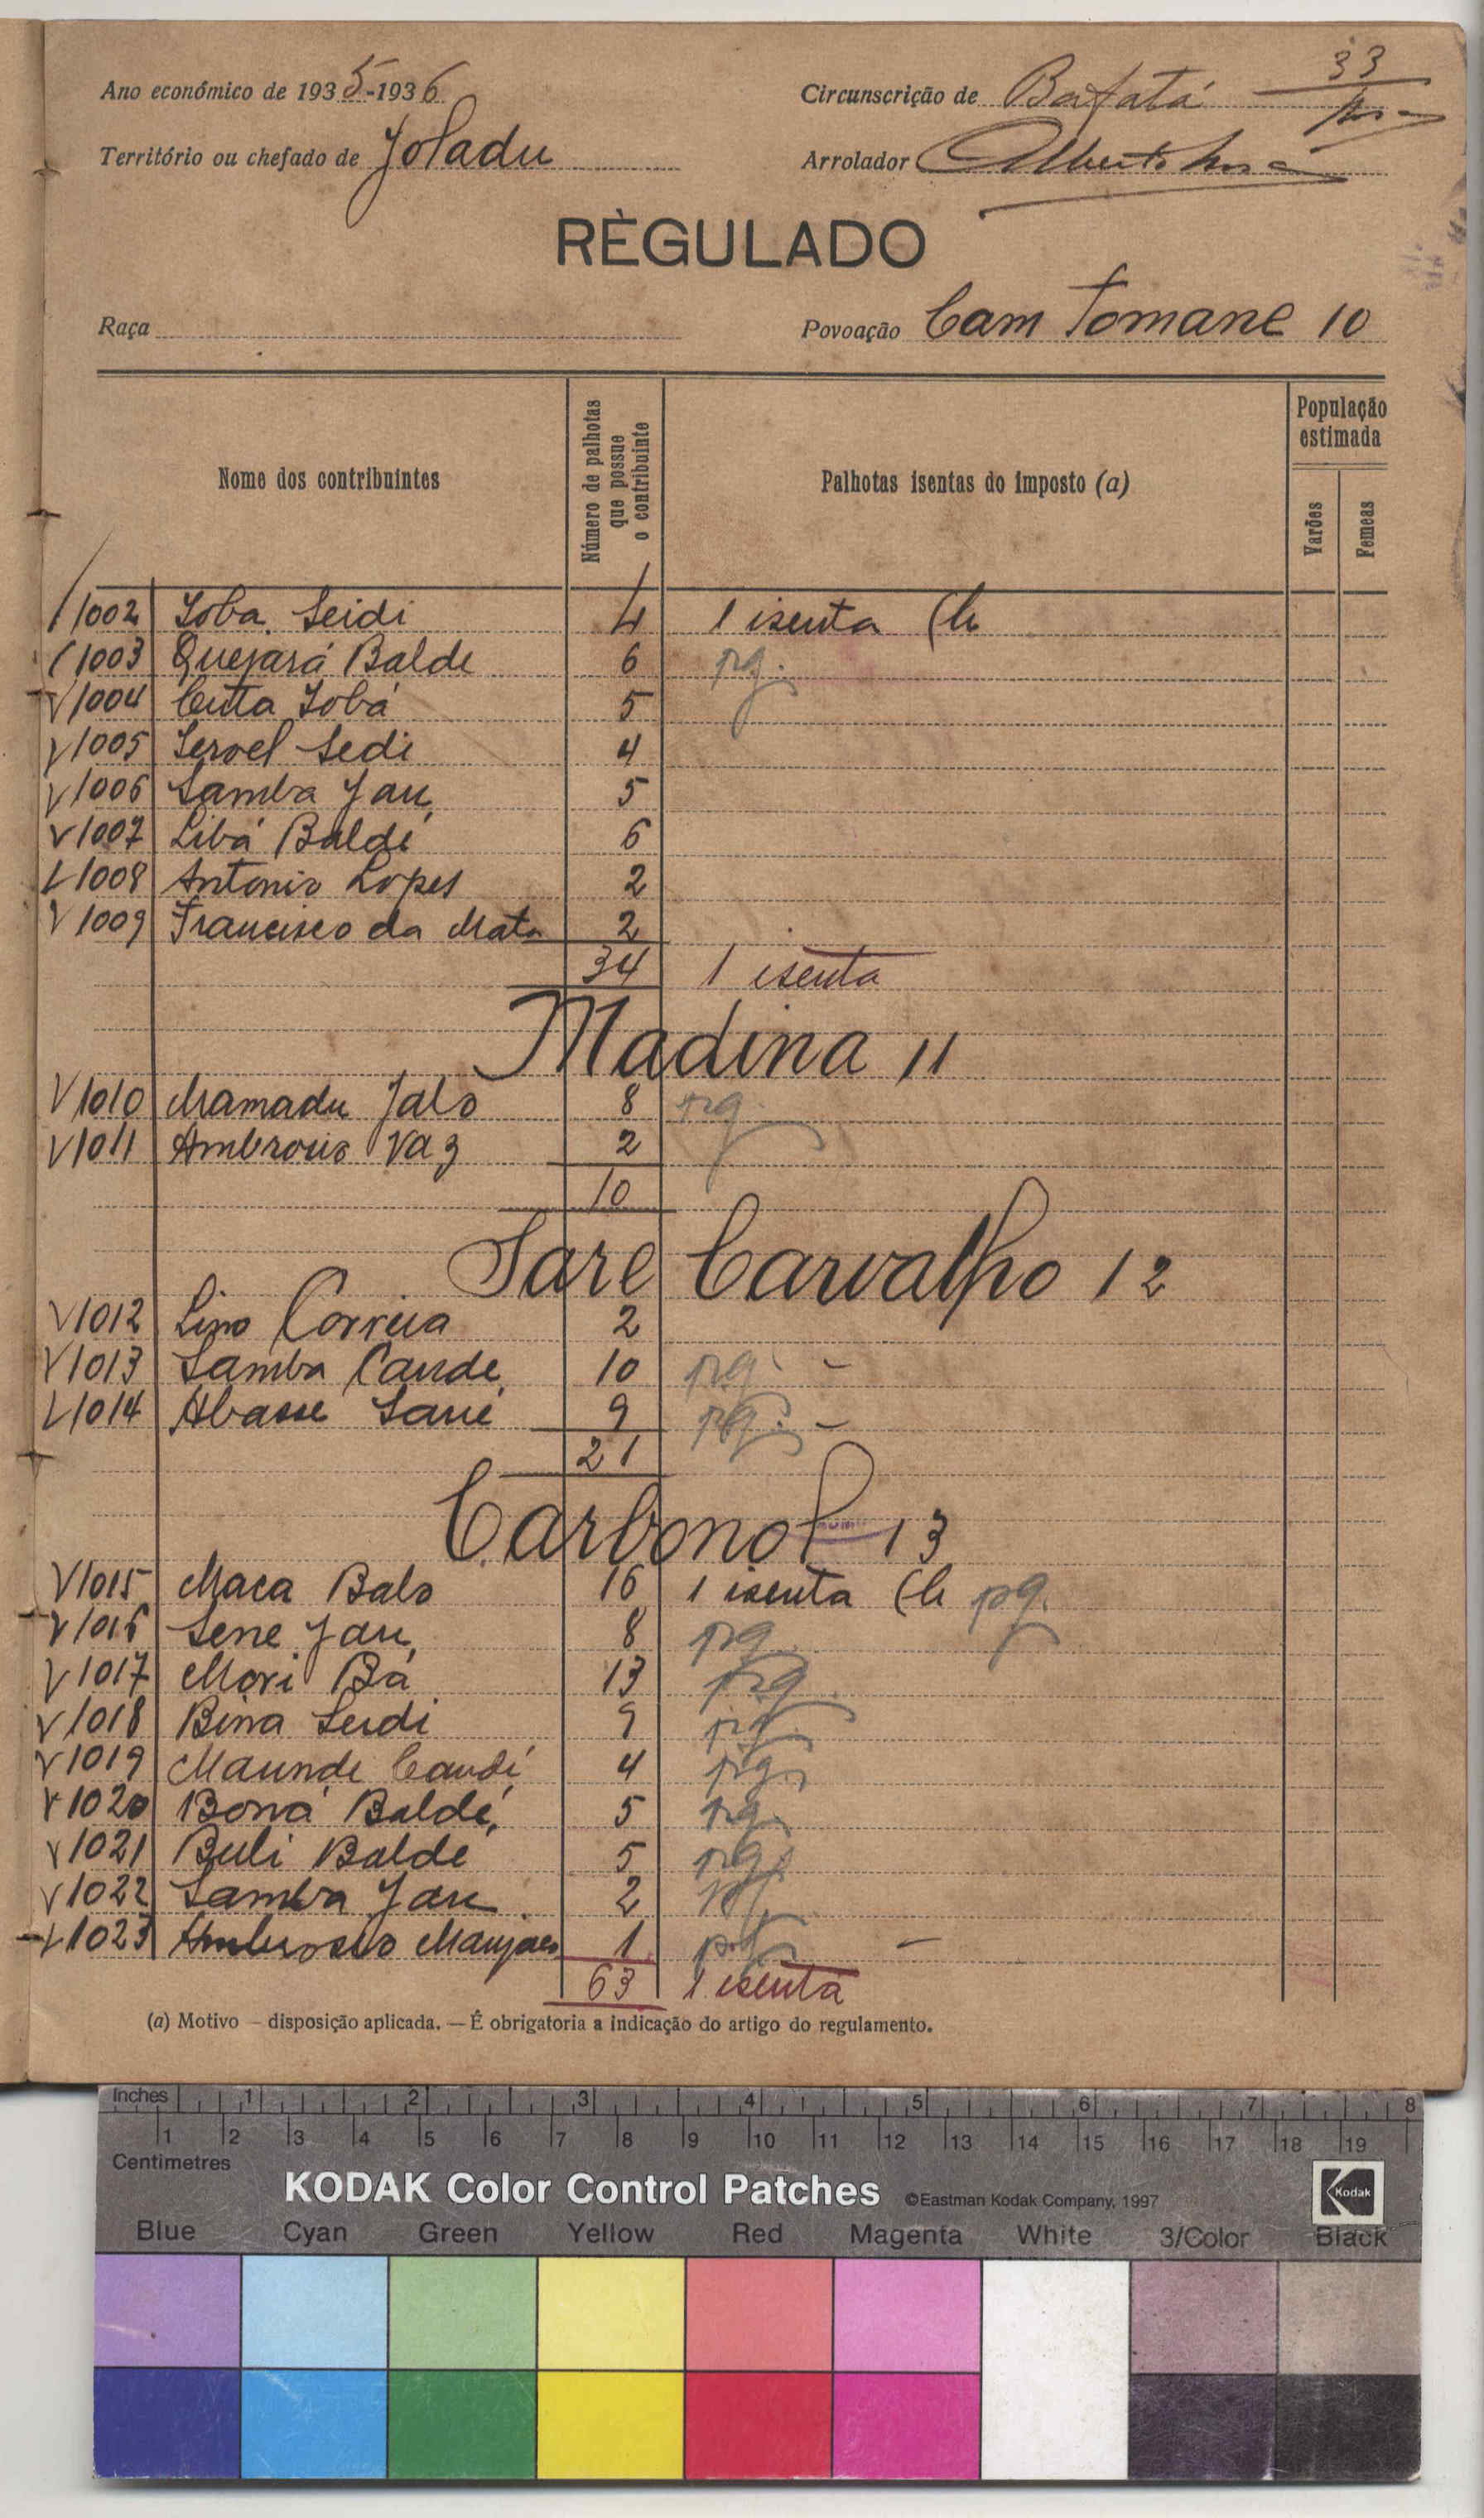 Ano económico de 1935-1936 Circunscrição de Bafatá 33
Território ou chefado de Joladu Arrolador Alberto
RÈGULADO
Raça Povoação Cam Tomane 10
Nome dos contribuintes Número de palhotas que possue o contribuinte Palhotas isentas do imposto (a) População estimada Varões Femeas
1002 Joba Seidi 4 1 isenta (h
1003 Querará Balde 6 pg.
1004 Cuta Jobá 5
1005 Seroel Sedi 4
1006 Samba Jau 5
1007 Libá Baldé 6
1008 Antonio Lopes 2
1009 Francisco da Mata 2
34 1 isenta
Madina 11
1010 Mamadu Jalo 8 pg.
1011 Ambrosio Vaz 2
10
Sare Carvalho 12
1012 Lino Correia 2
1013 Samba Cande 10 pg. -
1014 Abasse Sané 9 pg. -
21
Carbonol 13
1015 Maca Balo 16 1 isenta (h pg.
1016 Sene Jau 8 pg
1017 Mori Bá 13 pg
1018 Bina Seidi 9 pg.
1019 Maunde Candé 4 pg.
1020 Boná Baldé 5 pg.
1021 Buli Balde 5 pg.
1022 Samba Jau 2 pg
1023 Ambrosio 1 pg -
63 1 isenta
(a) Motivo — disposição aplicada. — É obrigatoria a indicação do artigo do regulamento.
Inches 1 2 3 4 5 6 7 8
1 2 3 4 5 6 7 8 9 10 11 12 13 14 15 16 17 18 19
Centimetres
KODAK Color Control Patches ©Eastman Kodak Company, 1997 Kodak
Blue Cyan Green Yellow Red Magenta White 3/Color Black